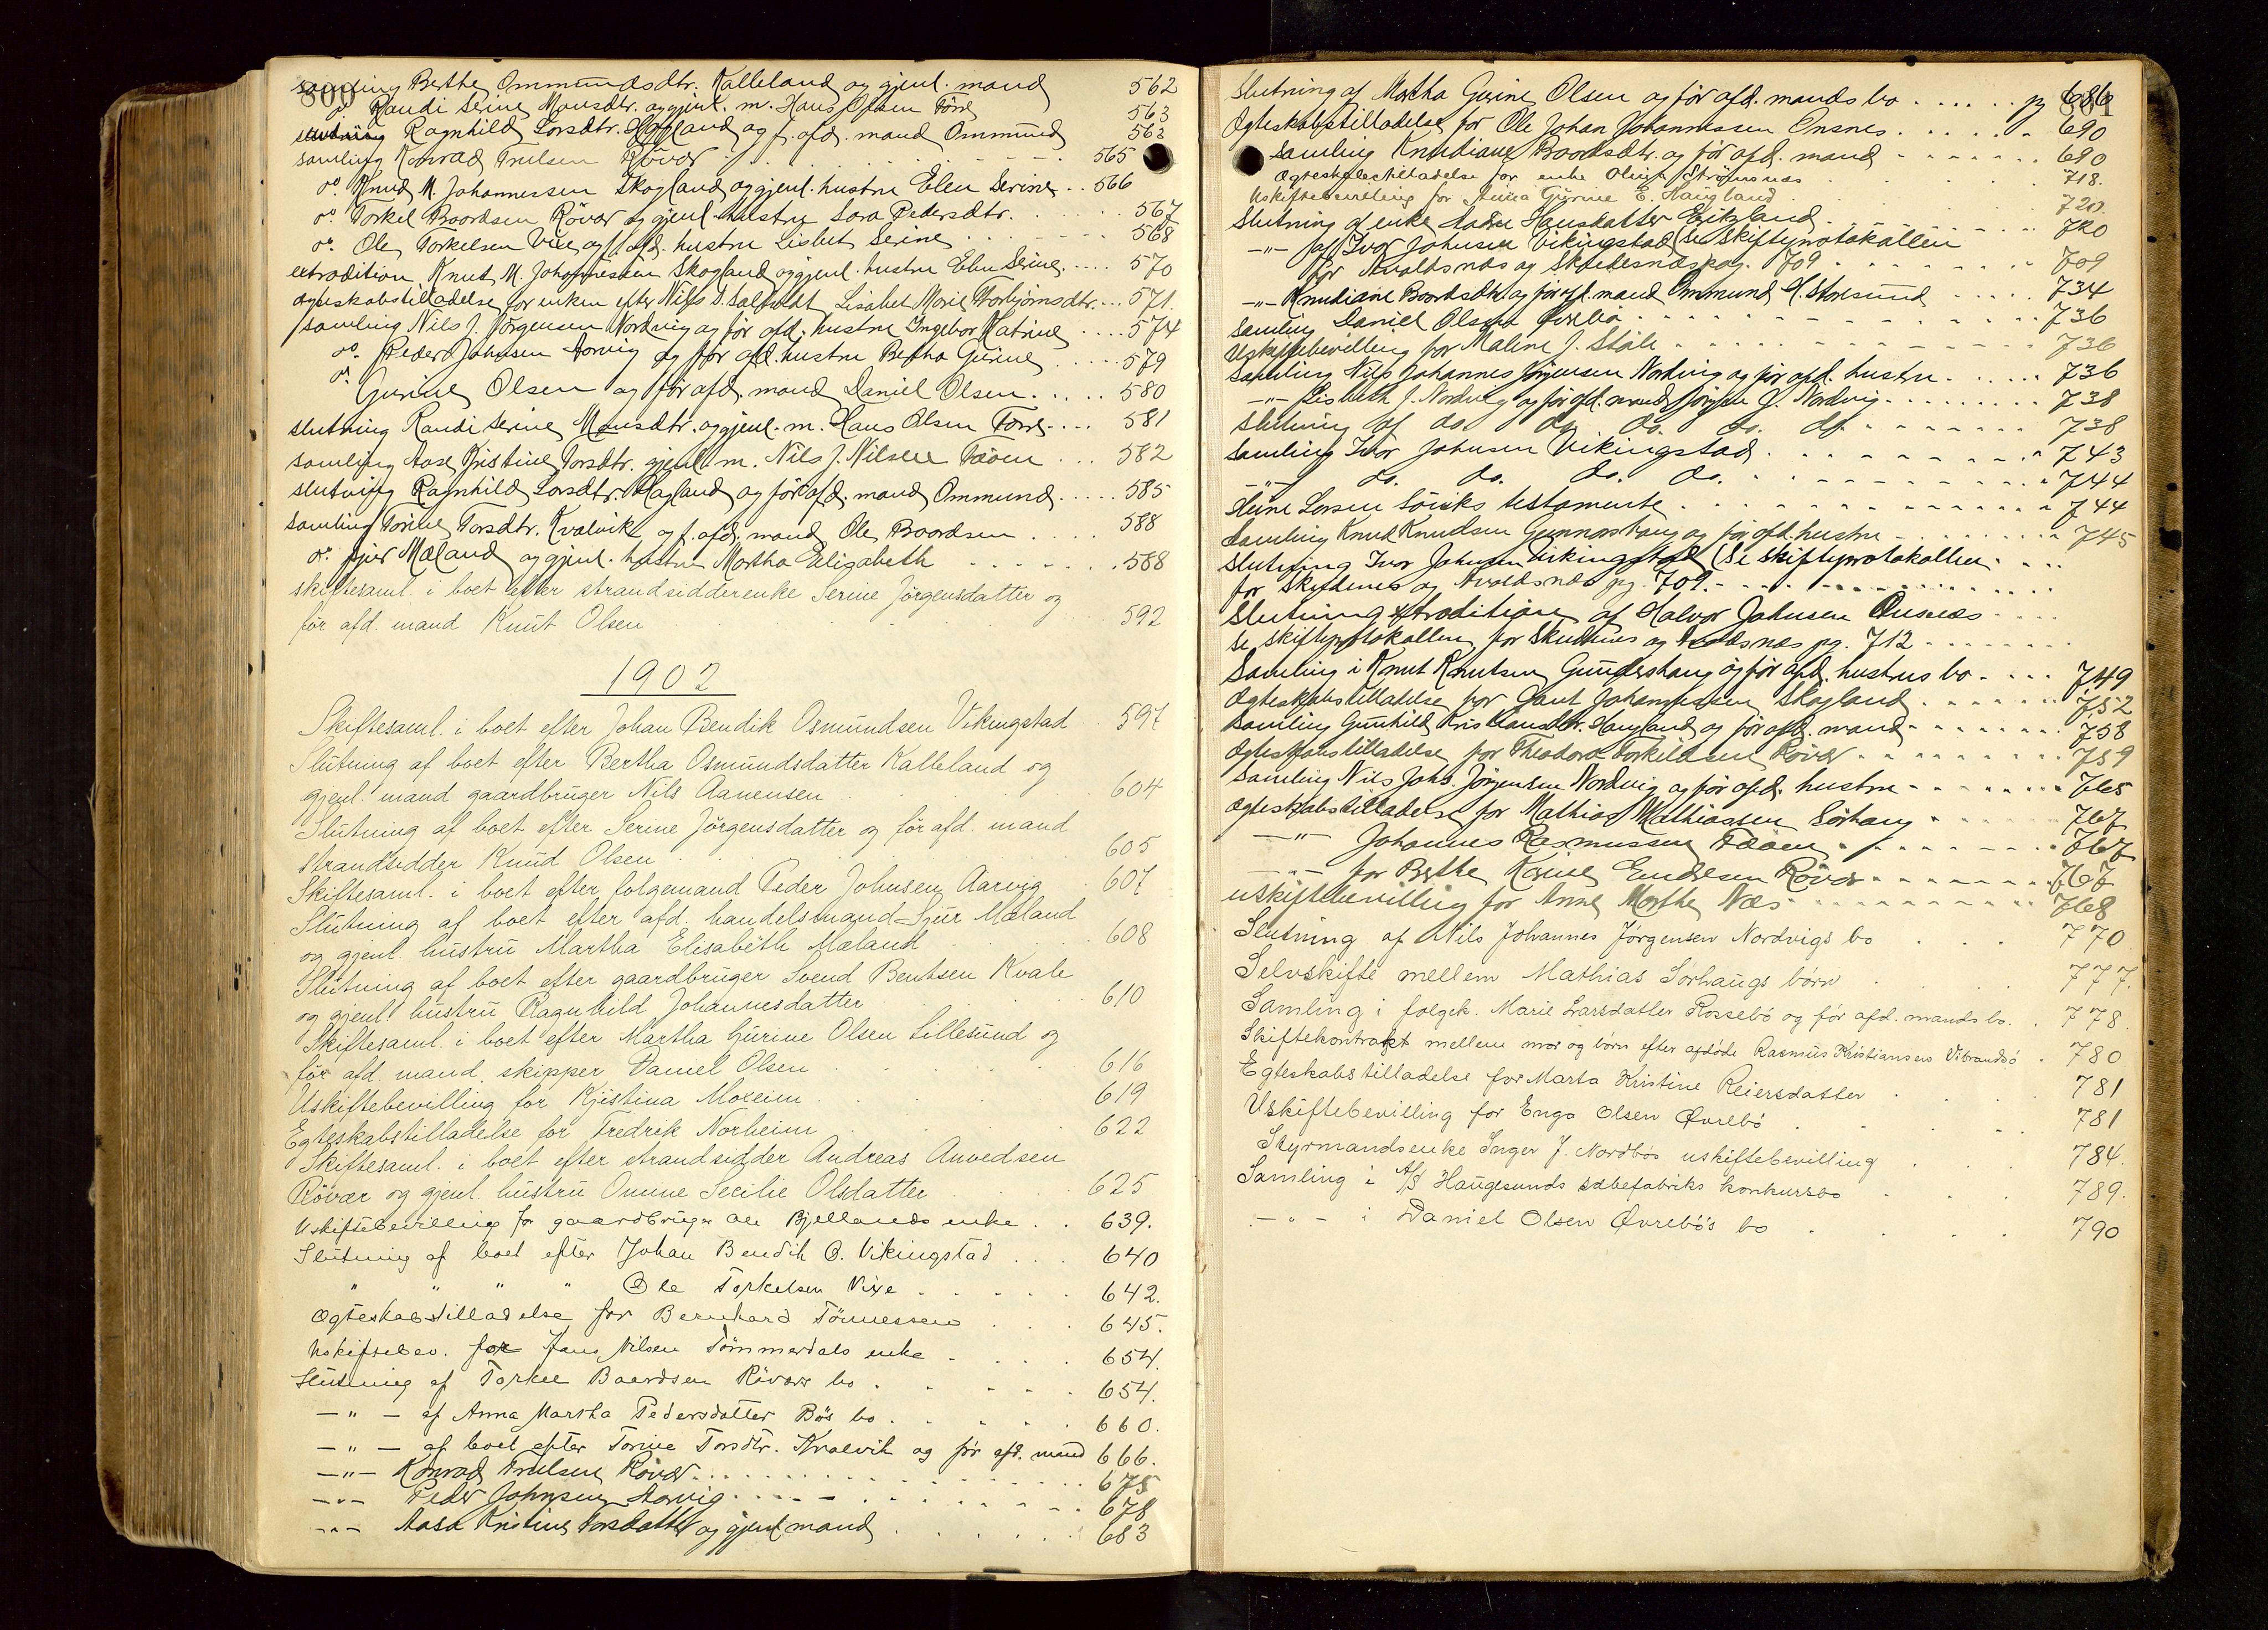 800
samling Berthe Ommundsdtr. Kalleland og gjenl. mand 562
do. Randi Serine Monsdtr. og gjenl. m. Hans Olsen Förre 563
slutning Ragnhild Larsdtr. Hagland og f. afd. mand Ommund 563
samling Konrad Trulsen Rövær 565
do. Knud M. Johannessen Skogland og gjenl. hustru Elen Serine 566
do. Torkel Baardsen Rövær og gjenl. hustru Sara Pedersdtr. 567
do. Ole Torkelsen Vixe og f. afd. hustru Lisbet Serine 568
extradition Knut M. Johannessen Skogland og gjenl. hustru Elen Serine 570
ægteskabstilladelse for enken efter Nils Lisabet Marie Torbjörnsdtr. 571.
samling Nils J. Jörgensen Nordvig og för afd. hustru Ingebor Katrine 574
do. Peder Johnsen Aarvig og för afd. hustru Bertha Gurine 579
do. Gurine Olsen og för afd. mand Daniel Olsen 580
slutning Randi Serine Monsdtr. og gjenl. m. Hans Olsen Förre 581
samling Aase Kristine Torsdtr. gjenl. m. Nils J. Nilsen Fæøen 582
slutning Ragnhild Larsdtr. Hagland og för afd. mand Ommund 585
samling Torine Torsdtr. Kvalvik og f. afd. mand Ole Baardsen 588
do. Sjur Mæland og gjenl. hustru Martha Elisabeth 588
skiftesaml. i boet efter strandsidderenke Serine Jörgensdatter og
för afd. mand Knut Olsen 592
1902
Skiftesaml. i boet efter Johan Bendik Osmundsen Vikingstad 597
Slutning af boet efter Bertha Osmundsdatter Kalleland og
gjenl. mand gaardbruger Nils Aanensen 604
Slutning af boet efter Serine Jörgensdatter og för afd. mand
strandsidder Knud Olsen 605
Skiftesaml. i boet efter folgemand Peder Johnsen Aarvig 607
Slutning af boet efter afd. handelsmand Sjur Mæland
og gjenl. hustru Martha Elisabeth Mæland 608
Slutning af boet efter gaardbruger Svend Bentsen Kvale
og gjenl. hustru Ragnhild Johannesdatter 610
Skiftesaml. i boet efter Martha Gurine Olsen Lillesund og
för afd. mand skipper Daniel Olsen 616
Uskiftebevilling for Kjistina Moxeim 619
Egteskabstilladelse for Fredrik Norheim 622
Skiftesaml. i boet efter strandsidder Andreas Anvedsen
Rövær og gjenl. hustru Omine Secilie Olsdatter 625
Uskiftebevilling for gaardbruger Ole Bjellands enke 639.
Slutning af boet efter Johan Bendik O. Vikingstad 640
" " " " Ole Torkelsen Vixe 642.
Ægteskabstilladelse for Bernhard Tönnessen 645.
Uskiftebev. for Jans Nilsen Tömmerdals enke 654.
Slutning af Torkel Baardsen Röværs bo 654.
— " — af Anna Martha Pedersdatter Bös bo 660.
— " — af boet efter Torine Torsdtr. Kvalvik og för afd. mand 666.
— " — Konrad Trulsen Rövær 675
— " — Peder Johnsen Aarvig 678
— " — Aasa Kristine Torsdatter og gjenl. mand 683
801
Slutning af Martha Gurine Olsen og för afd. mands bo pg 686
Ægteskabstilladelse for Ole Johan Johannessen Onsnes 690
Samling Knudiane Baardsdtr. og för afd. mand 690
Ægteskabstilladelse for enke Strömsnæs 718.
Uskiftebevilling for Anna Gurine E. Haugland 720.
Slutning af enke Hansdatter Eikeland 720
— " — af Ivar Johnsen Vikingstad (se skifteprotokollen
for Avaldsnæs og Skudesnæs pag. 709 709
— " — Knudiane Baardsdtr. og för afd. mand Ommund H. Storesund 734
Samling Daniel Olsen Övrebö 736
Uskiftebevilling for Maline J. Stöle 736
Samling Nils Johannes Jörgensen Nordvig og för afd. hustru 736
— " — Lisbeth J. Nordvig og för afd. mand Jörgen J. Nordvig 738
Slutning af do. do. do. do. do. 738
Samling Ivar Johnsen Vikingstad 743
— " — do. do. do. do. 744
Stine Larsen testamente 744
Samling Knud Knudsen Gunnarshaug og för afd. hustru 745
Slutning Ivar Johnsen Vikingstad (Se skifteprotokollen
for Skudenes og Avaldsnæs pg. 709.
Slutning extradition af Halvor Johnsen Onsnæs
se skifteprotokollen for Skudenes og Avaldsnæs pg. 712
Samling i Knut Knutsen Gunnarshaug og för afd. hustrus bo 749
Ægteskabstilladelse for Johannessen Skogland 752
Samling Gunhild Kristiansdtr. Haugland og för afd. mand 758
Ægteskabstilladelse for Theodora Torkildsen Rövær 759
Samling Nils Johs. Jörgensen Nordvig og för afd. hustru 765
Ægteskabstilladelse for Mathias Mathiassen Sörhaug 767
— " — Johannes Rasmussen Fæøen 767
— " — for Berthe Karine Endresen Rövær 767
uskiftebevilling for Anne Marthe Næs 768
Slutning af Nils Johannes Jørgensen Nordvigs bo 770
Selvskifte mellem Mathias Sörhaugs börn 777.
Samling i folgek. Marie Larsdatter Rossebö og för afd. mands bo. 778.
Skiftekontrakt mellem mor og börn efter afdöde Rasmus Kristiansen Vibrandsö 780
Egteskabstilladelse for Marta Kristine Reiersdatter 781
Uskiftebevilling for Engo Olsen Øvrebö 781
Styrmandsenke Inger J. Nordbös uskiftebevilling 784.
Samling i A/S Haugesunds sæbefabriks konkursbo 789.
— " — i Daniel Olsen Øvrebö's bo 790